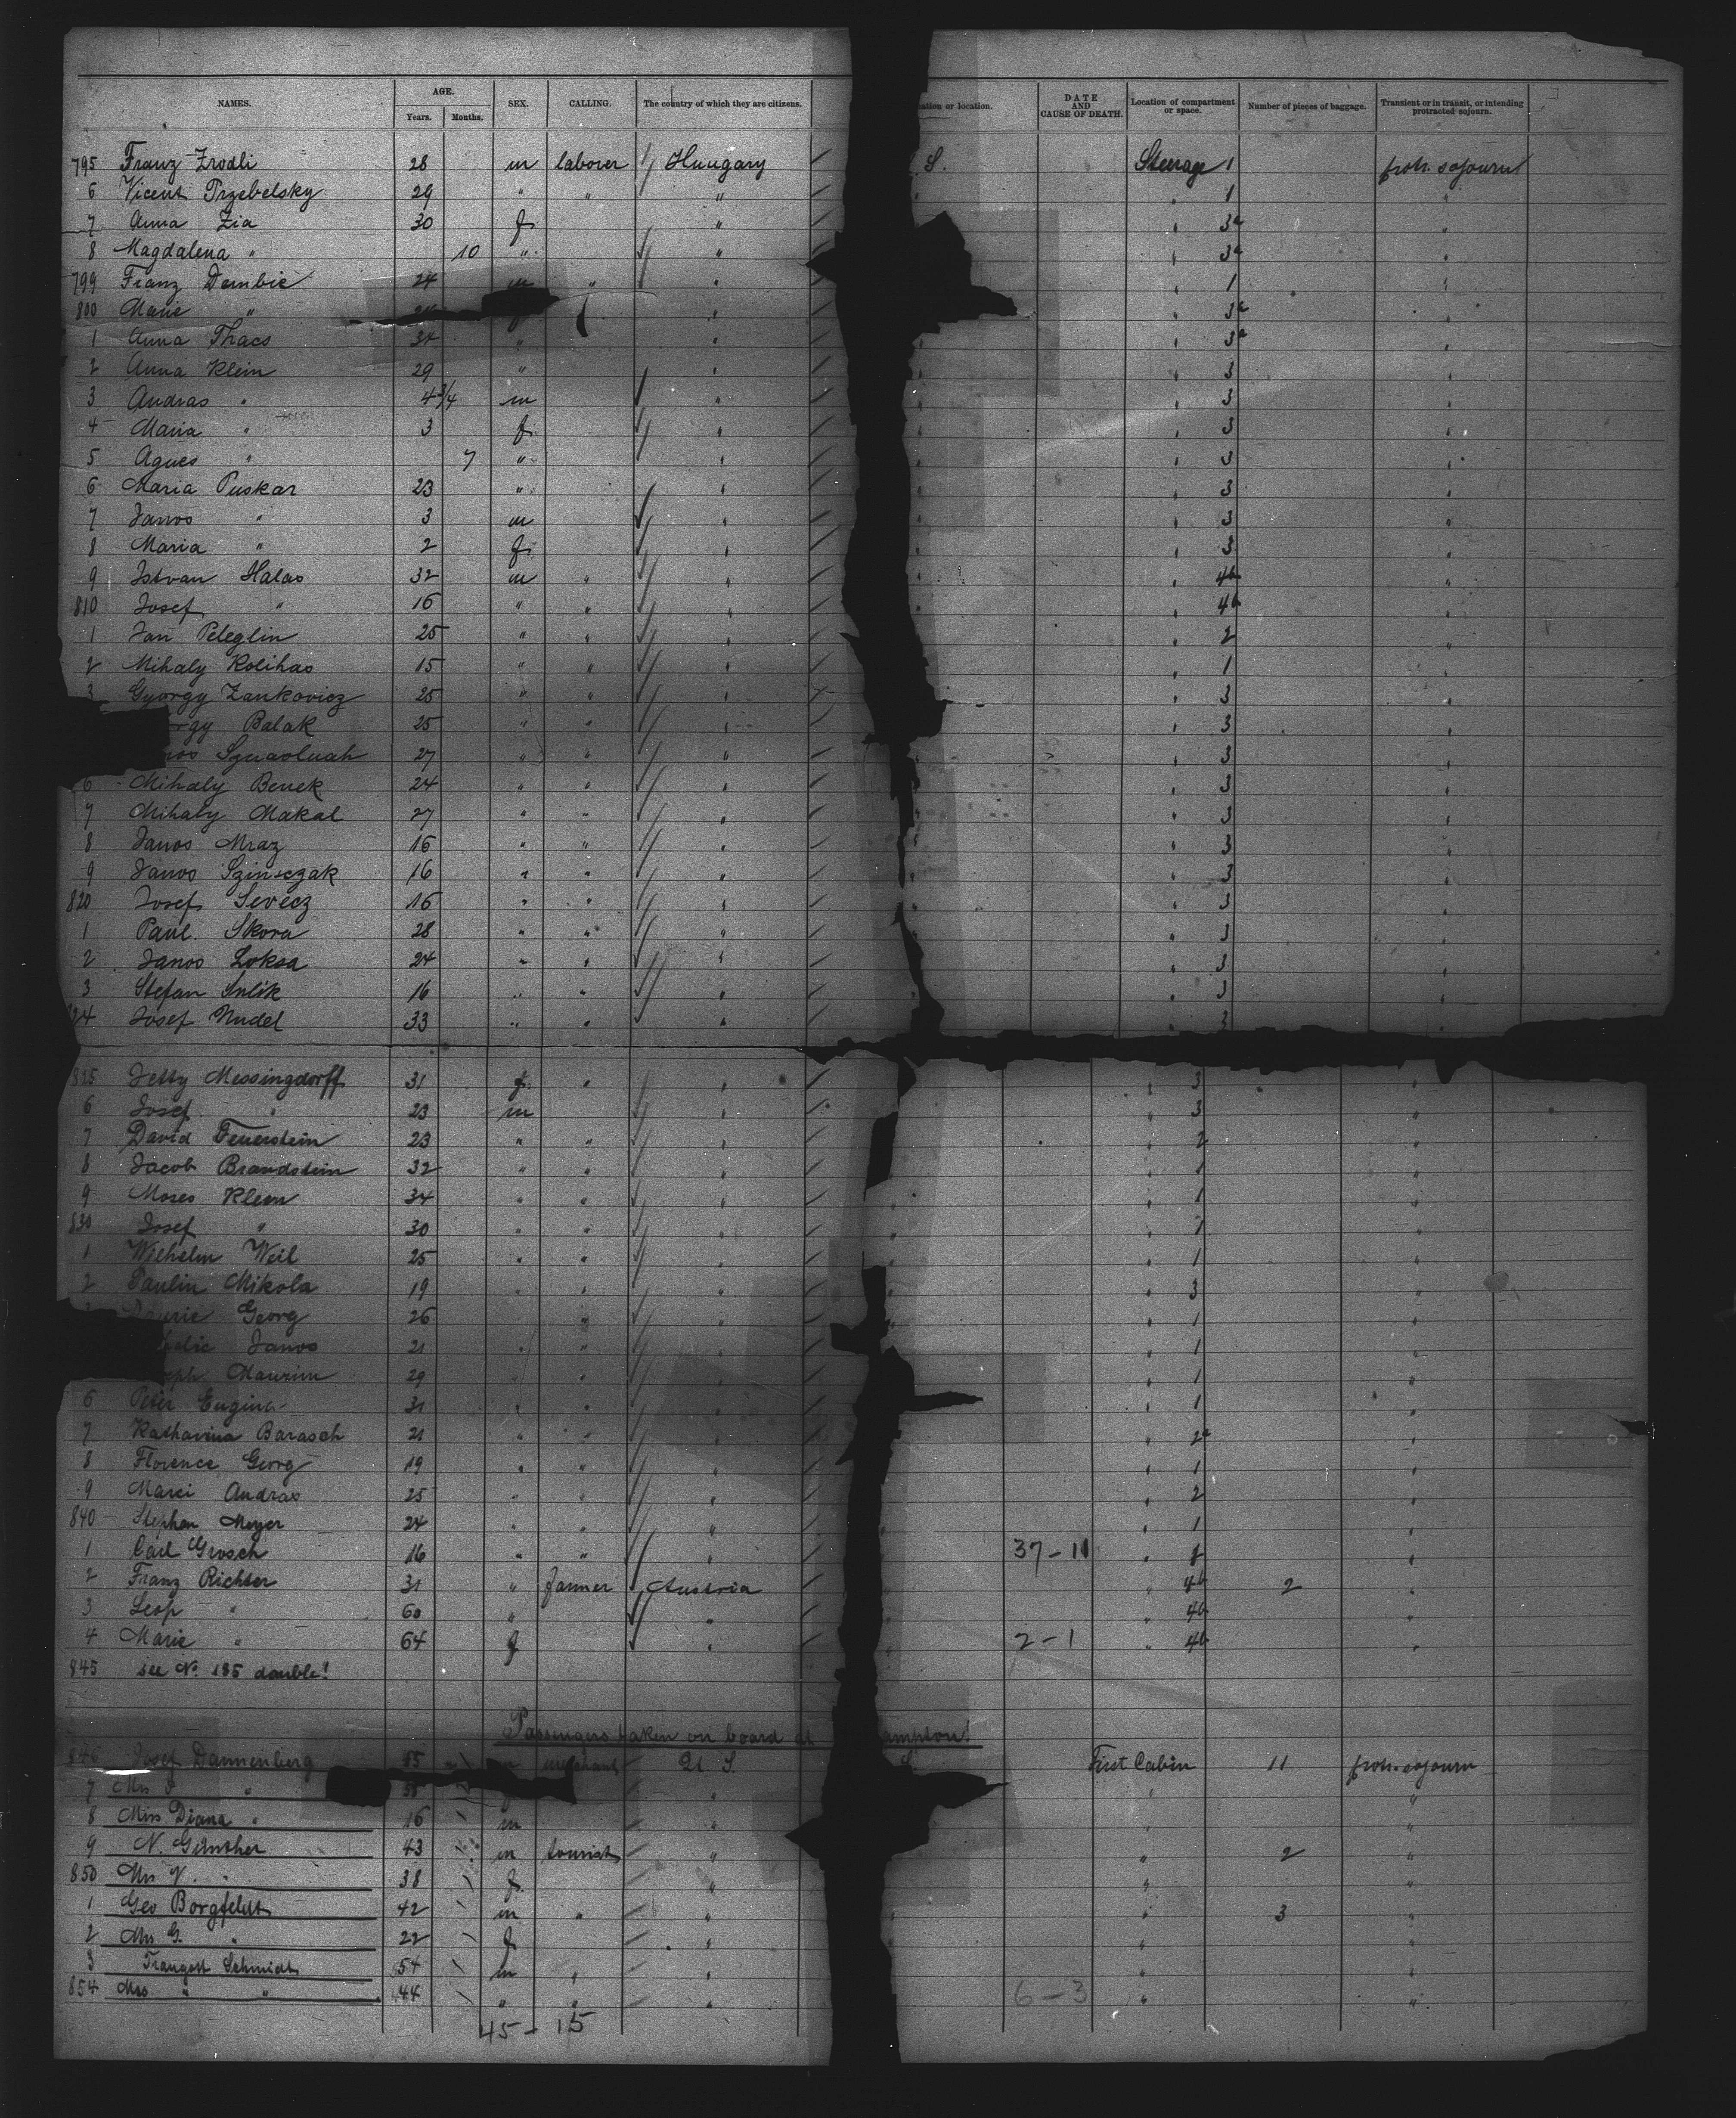 NAMES. AGE. SEX. CALLING. The country of which they are citizens. ation or location. DATE AND CAUSE OF DEATH. Location of compartment or space. Number of pieces of baggage. Transient or in transit, or intending protracted sojourn.
Years. Months.
795 Franz Zrodli 28 m laborer Hungary S. Steerage 1 protr. sojourn
6 Vicent Przebelsky 29 " " " 1 "
7 Anna Zia 30 f " 3a "
8 Magdalena " 10 " " 3a "
799 Franz Dembic 24 m " " 1 "
800 Marie " f " 3a "
1 Anna Thacs 34 " " 3a "
2 Anna Klein 29 " " 3 "
3 Andras " 4 3/4 m " 3 "
4 Maria " 3 f " 3 "
5 Agnes " 7 " " 3 "
6 Maria Puskar 23 " " 3 "
7 Janos " 3 m " 3 "
8 Maria " 2 f " 3 "
9 Istvan Halas 32 m " " 4b "
810 Josef " 16 " " " 4b "
1 Jan Peleglin 25 " " " 2 "
2 Mihaly Kolihas 15 " " " 1 "
3 Gyorgy Zankovicz 25 " " " 3 "
rgy Balak 25 " " " 3 "
nos 27 " " " 3 "
6 Mihaly Benek 24 " " " 3 "
7 Mihaly Makal 27 " " " 3 "
8 Janos Mraz 16 " " " 3 "
9 Janos Szinsczak 16 " " " 3 "
820 Josef Sevecz 16 " " " 3 "
1 Paul Skora 28 " " " 3 "
2 Janos Loksa 24 " " " 3 "
3 Stefan Snlik 16 " " " 3 "
24 Josef Nudel 33 " " " 3 "
825 Jetty Messingdorff 31 f " " 3 "
6 Josef " 23 m " 3 "
7 David Feuerstein 23 " " " 2 "
8 Jacob Brandstein 32 " " " 1 "
9 Moses Klein 34 " " " 1 "
830 Josef " 30 " " " 1 "
1 Wilhelm Weil 25 " " " 1 "
2 Paulin Mikola 19 " " " 3 "
Georg 26 " " 1 "
Janos 21 " " " 1 "
eph Maurim 29 " " " 1 "
6 Peter Eugina 31 " " " 1 "
7 Katharina Barasch 21 " " " 2a "
8 Florence Georg 19 " " " 1 "
9 Marci Andras 25 " " " 2 "
840 Stephan Meyer 24 " " " 1 "
1 Carl Grosch 16 " " " 37-11 "
2 Franz Richter 31 " farmer Austria 4b 2 "
3 Leop " 60 " " 4b "
4 Marie " 64 f " 2-1 4b "
845 see No. 185 double!
Passengers taken on board at ampton!
846 Josef Dannenberg 55 m merchant U S. First Cabin 11 protr. sojourn
7 Mrs J " " "
8 Miss Diana " 16 m " " "
9 N. Günther 43 m tourist " " 2 "
850 Mrs N. " 38 f " " "
1 Geo Borgfeldt 42 m " " " 3 "
2 Mrs G. " 22 f " " "
3 Traugott Schmidt 54 m " " " "
854 Mrs " " 44 " " " 6-3 " "
45 - 15